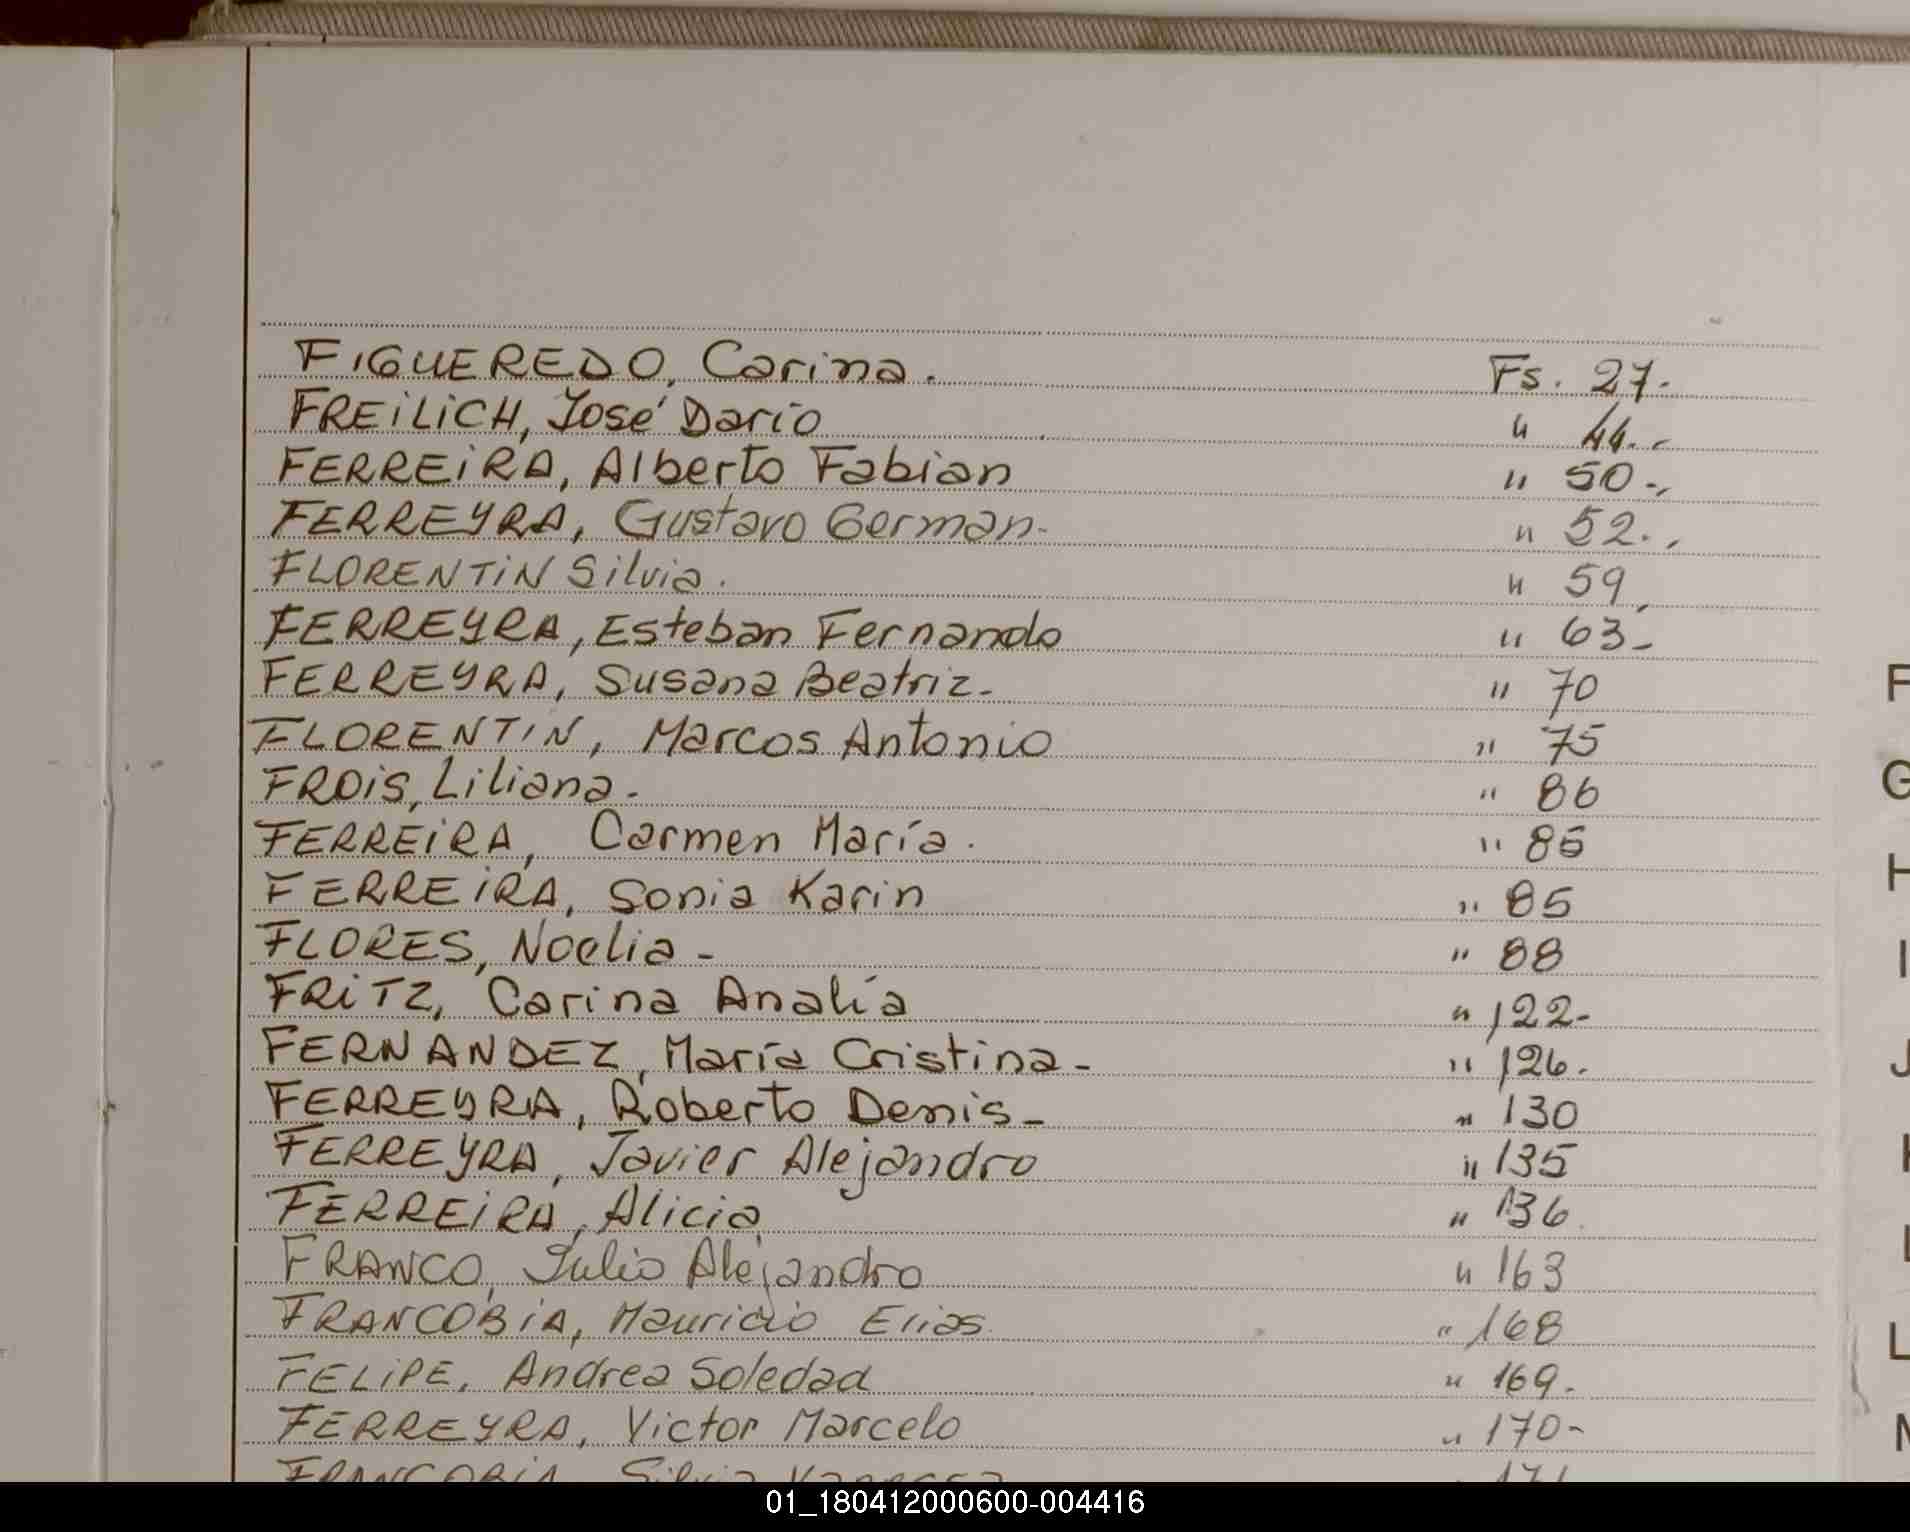 FIGUEREDO, Carina. Fs. 27.-
FREILICH, José Darío " 44.-
FERREIRA, Alberto Fabian " 50.-
FERREYRA, Gustavo German.- " 52.-
FLORENTIN Silvia. " 59
FERREYRA, Esteban Fernando " 63.-
FERREYRA, Susana Beatriz.- " 70
FLORENTIN, Marcos Antonio " 75
FROIS, Liliana.- " 86
FERREIRA, Carmen María. " 85
FERREIRA, Sonia Karin " 85
FLORES, Noelia - " 88
FRITZ, Carina Analía " 122-
FERNANDEZ, María Cristina - " 126.
FERREYRA, Roberto Denis - " 130
FERREYRA, Javier Alejandro " 135
FERREIRA, Alicia " 136
FRANCO, Julio Alejandro " 163
FRANCOBIA, Mauricio Elias. " 168
FELIPE, Andrea Soledad " 169.
FERREYRA, Victor Marcelo " 170-
FRANCOBIA, Silvia Vanessa " 171
F
G
H
I
J
K
L
L
M
01_180412000600-004416